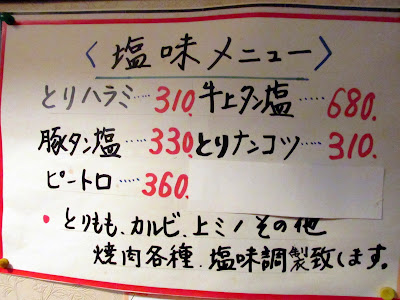 〈塩味メニュー〉
とりハラミ……310. 牛上タン塩……680.
豚タン塩……330. とりナンコツ……310.
ピートロ……360.
・とりもも、カルビ、上ミノその他
焼肉各種、塩味調製致します。